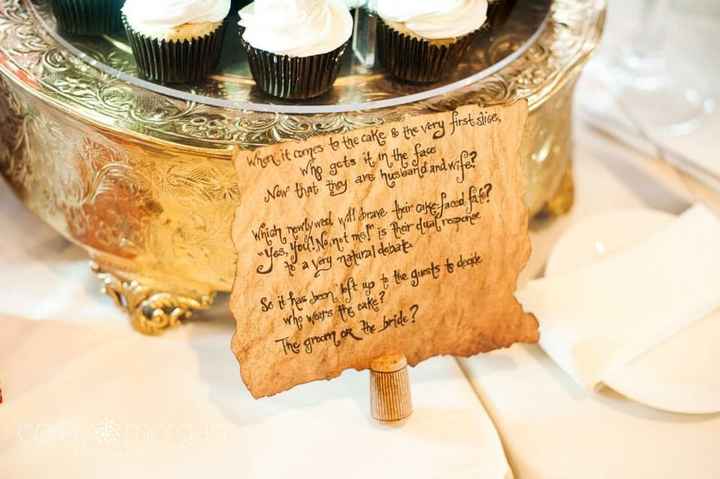 When it comes to the cake & the very first slice,
who gets it in the face
Now that they are husband and wife?
Which newlywed will brave their cake-faced fate?
"Yes, You! No, not me!" is their dual response
to a very natural debate.
So it has been left up to the guests to decide
who wears the cake?
The groom or the bride?